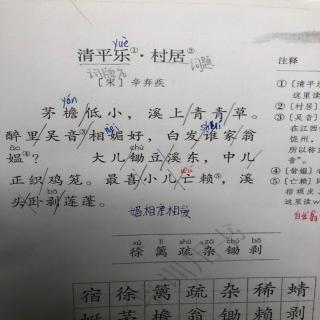 yuè
清平乐①·村居②
词牌名 词题
[宋] 辛弃疾
yán
茅檐低小，溪上青青草。
醉里吴音③相媚好，白发谁家翁
ǎo chú
媪④？ 大儿锄豆溪东，中儿
wú
正织鸡笼。最喜小儿亡赖⑤，溪
bō
头卧剥莲蓬。
xú lí shū zá chú bō
徐 篱 疏 杂 锄 剥
宿 徐 篱 疏 杂 稀 蜻
蜓 茅 檐 翁 锄 赖 剥
注释
①[清平
这里读
②[村居]
③[吴音]
在江西
饶州，
所以称
音”。
④[翁媪]
⑤[亡赖]
这里读w